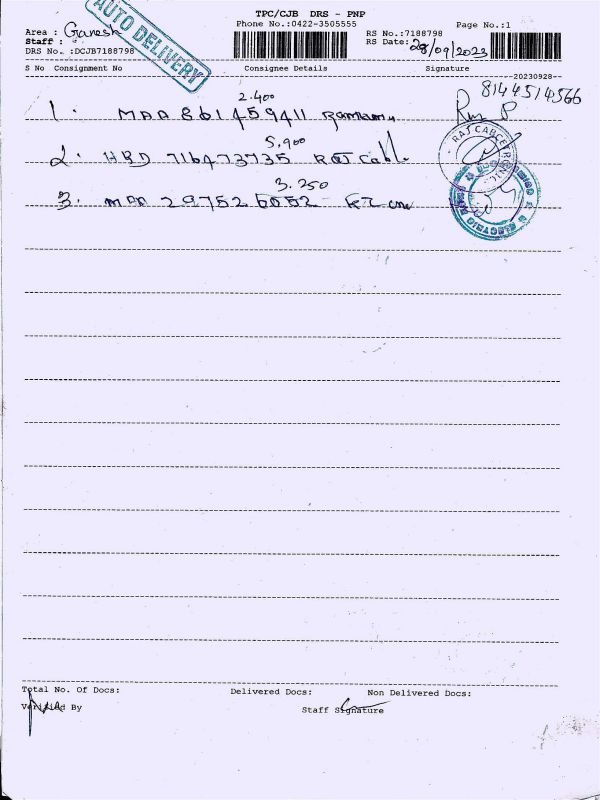 TPC/CJB DRS - PNP
Phone No.:0422-3505555
Page No.:1
Area : Ganesh
Staff :
DRS No. :DCJB7188798
RS No.:7188798
RS Date: 28/09/2023
AUTO DELIVERY
S No Consignment No Consignee Details Signature
--20230928--
8144514566
2.400
1. MAA 861459411
5.900
2. HRD 716473735 Raj Cable
3.250
3. MAA 297526052
RAJ CABLE
Total No. Of Docs: Delivered Docs: Non Delivered Docs:
Verified By Staff Signature